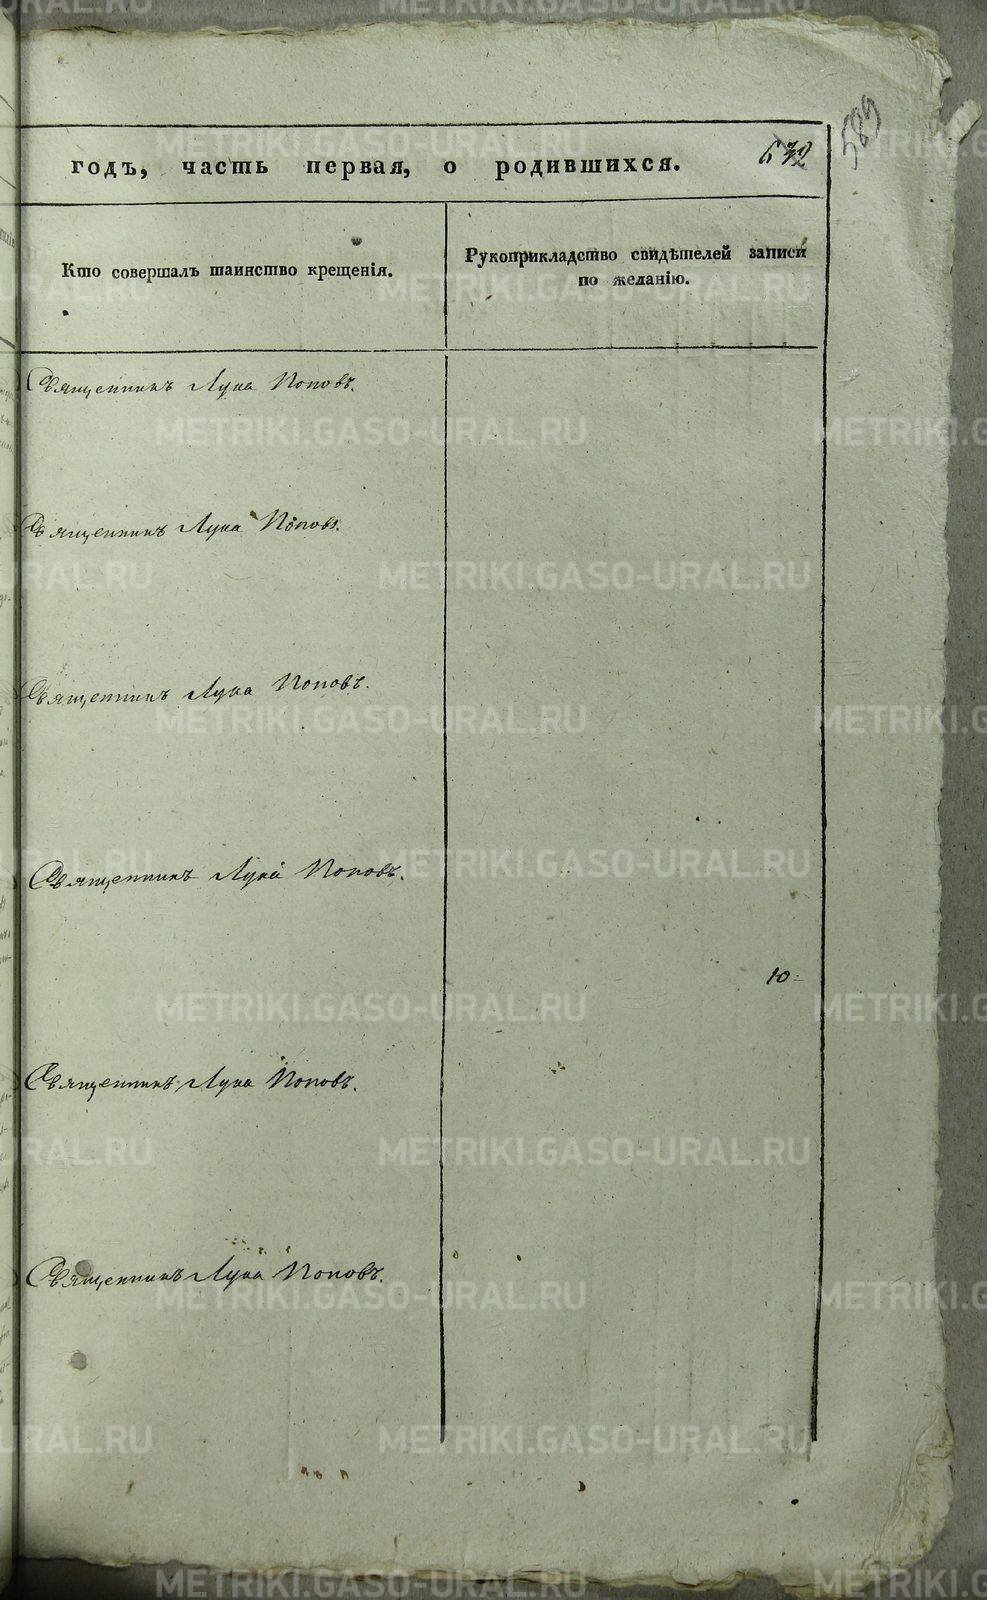 589
годъ, часть первая, о родившихся. 632
Кто совершалъ таинство крещенія.
Рукоприкладство свидѣтелей записи
по желанію.
Священникъ Лука Поповъ.
Священникъ Лука Поповъ.
Священникъ Лука Поповъ.
Священникъ Лука Поповъ.
10
Священникъ Лука Поповъ.
Священникъ Лука Поповъ.
METRIKI.GASO-URAL.RU